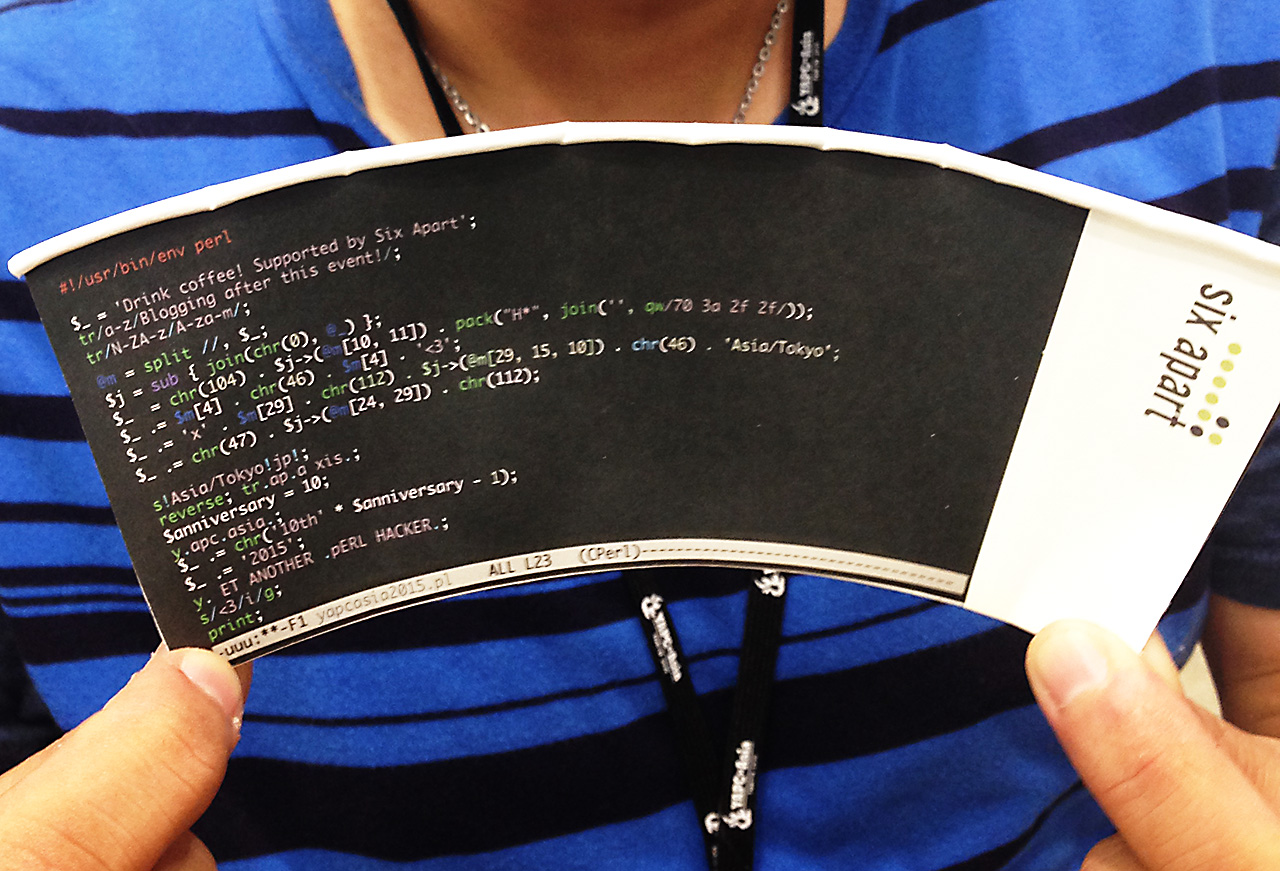 YAPC::Asia
#!/usr/bin/env perl
$_ = 'Drink coffee! Supported by Six Apart';
tr/a-z/Blogging after this event!/;
tr/N-ZA-z/A-za-m/;
@m = split //, $_;
$j = sub { join(chr(0), @_) };
$_ = chr(104) . $j->(@m[10, 11]) . pack("H*", join('', qw/70 3a 2f 2f/));
$_ .= $m[4] . chr(46) . $m[4] . '<3';
$_ .= 'x' . $m[29] . chr(112) . $j->(@m[29, 15, 10]) . chr(46) . 'Asia/Tokyo';
$_ .= chr(47) . $j->(@m[24, 29]) . chr(112);
s!Asia/Tokyo!jp!;
reverse; tr.ap.a xis.;
$anniversary = 10;
y.apc.asia.;
$_ .= chr('10th' * $anniversary - 1);
$_ .= '2015';
y. ET ANOTHER .pERL HACKER.;
s/<3/i/g;
print;
-uuu:**-F1 yapcasia2015.pl ALL L23 (CPerl)
six apart
YAPC::Asia
YAPC::Asia